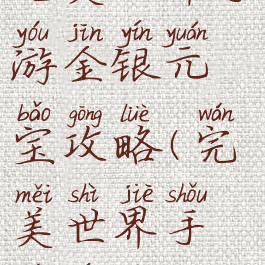 yóu jīn yín yuán
游金银元
bǎo gōng lüè wán
宝攻略(完
měi shì jiè shǒu
美世界手